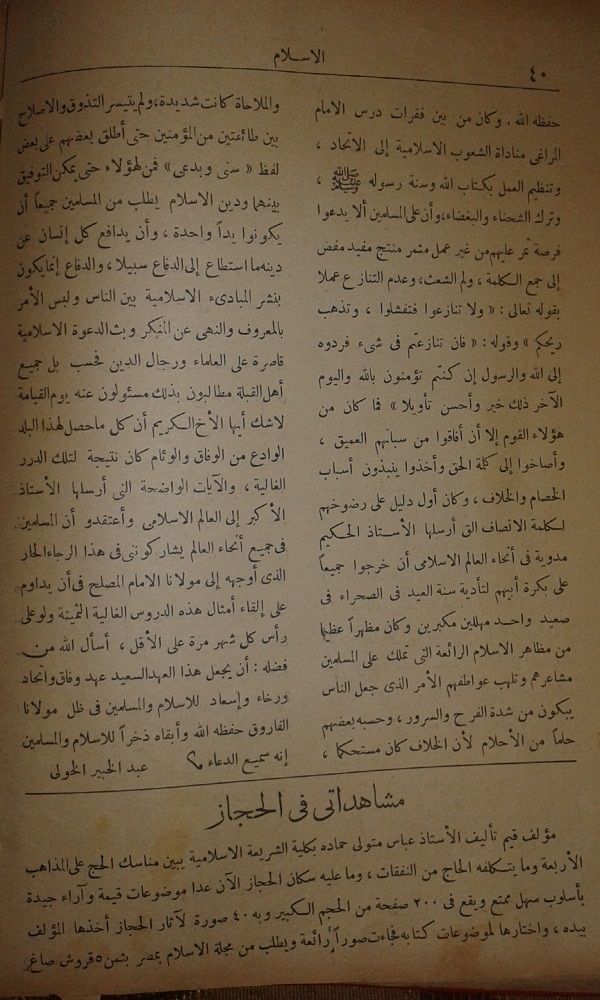 ٤٠
الاسلام
حفظه الله . وكان من بين فقرات درس الامام
المراغى مناداة الشعوب الاسلامية إلى الاتحاد ،
وتنظيم العمل بكتاب الله وسنة رسوله ﷺ ،
وترك الشحناء والبغضاء، وأن على المسلمين ألا يدعوا
فرصة تمر عليهم من غير عمل مثمر منتج مفيد مفض
إلى جمع الكلمة ، ولم الشعث، وعدم التنازع عملا
بقوله تعالى : « ولا تنازعوا فتفشلوا ، وتذهب
ريحكم » وقوله : « فان تنازعتم فى شىء فردوه
إلى الله والرسول إن كنتم تؤمنون بالله واليوم
الآخر ذلك خير وأحسن تأويلا » فما كان من
هؤلاء القوم إلا أن أفاقوا من سباتهم العميق ،
وأصاخوا إلى كلمة الحق وأخذوا ينبذون أسباب
الخصام والخلاف ، وكان أول دليل على رضوخهم
لكلمة الانصاف التى أرسلها الأستاذ الحكيم
مدوية فى أنحاء العالم الاسلامى أن خرجوا جميعاً
على بكرة أبيهم لتأدية سنة العيد فى الصحراء فى
صعيد واحد مهللين مكبرين وكان مظهراً عظيما
من مظاهر الاسلام الرائعة التى تملك على المسلمين
مشاعرهم وتلهب عواطفهم الأمر الذى جعل الناس
يبكون من شدة الفرح والسرور ، وحسبه بعضهم
حلماً من الأحلام لأن الخلاف كان مستحكما ،
والملاحاة كانت شديدة، ولم يتيسر التذوق والاصلاح
بين طائفتين من المؤمنين حتى أطلق بعضهم على بعض
لفظ « سنى وبدعى » فمن لهؤلاء حتى يمكن التوفيق
بينهما ودين الاسلام يطلب من المسلمين جميعاً أن
يكونوا يداً واحدة ، وأن يدافع كل إنسان عن
دينه ما استطاع إلى الدفاع سبيلا ، والدفاع إنما يكون
بنشر المبادىء الاسلامية بين الناس وليس الأمر
بالمعروف والنهى عن المنكر وبث الدعوة الاسلامية
قاصرة على العلماء ورجال الدين فحسب بل جميع
أهل القبلة مطالبون بذلك مسئولون عنه يوم القيامة
لاشك أيها الأخ الكريم أن كل ما حصل لهذا البلد
الوادع من الوفاق والوئام كان نتيجة لتلك الدرر
الغالية ، والآيات الواضحة التى أرسلها الأستاذ
الأكبر إلى العالم الاسلامى وأعتقد أن المسلمين
فى جميع أنحاء العالم يشاركوننى فى هذا الرجاء الحار
الذى أوجهه إلى مولانا الامام المصلح فى أن يداوم
على إلقاء أمثال هذه الدروس الغالية الثمينة ولو على
رأس كل شهر مرة على الأقل ، أسأل الله من
فضله : أن يجعل هذا العهد السعيد عهد وفاق واتحاد
ورخاء وإسعاد للاسلام والمسلمين فى ظل مولانا
الفاروق حفظه الله وأبقاه ذخراً للاسلام والمسلمين
إنه سميع الدعاء عبد الخبير الخولى
مشاهداتى فى الحجاز
مؤلف قيم تأليف الأستاذ عباس متولى حماده بكلية الشريعة الاسلامية يبين مناسك الحج على المذاهب
الأربعة وما يتكلفه الحاج من النفقات ، وما عليه سكان الحجاز الآن عدا موضوعات قيمة وآراء جيدة
بأسلوب سهل ممتع ويقع فى ٢٠٠ صفحة من الحجم الكبير وبه ٤٠ صورة لآثار الحجاز أخذها المؤلف
بيده ، واختارها لموضوعات كتابه فجاءت صوراً رائعة ويطلب من مجلة الاسلام بمصر بثمن ٥ قروش صاغ